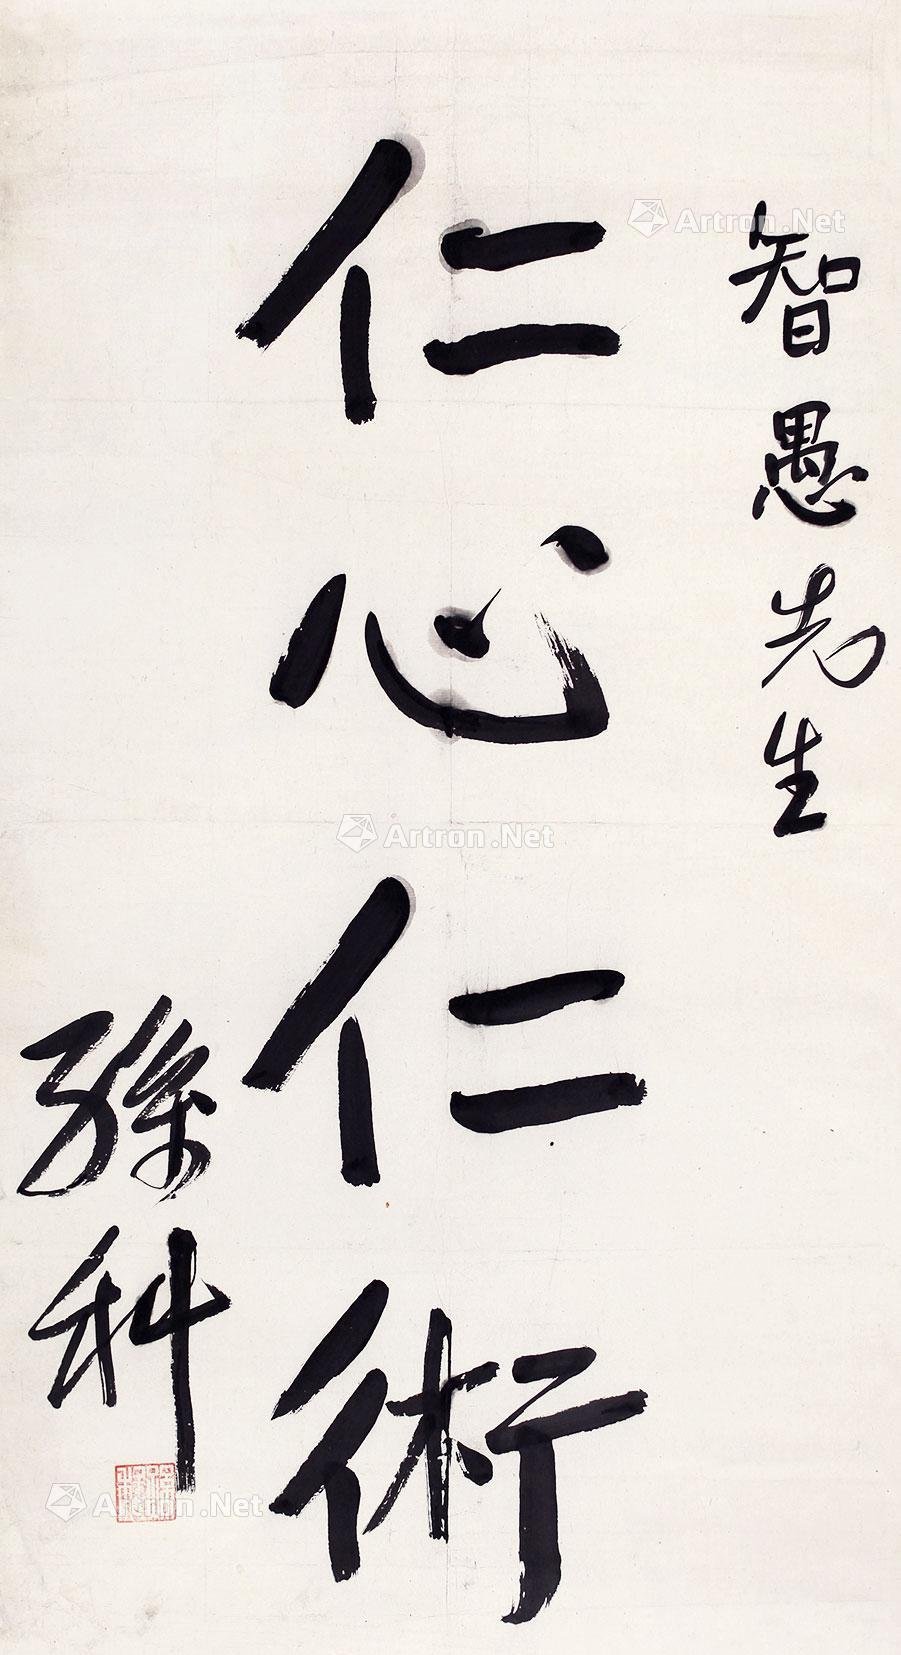 智愚先生
仁心仁術
孫科
Artron.Net
Artron.Net
Artron.Net